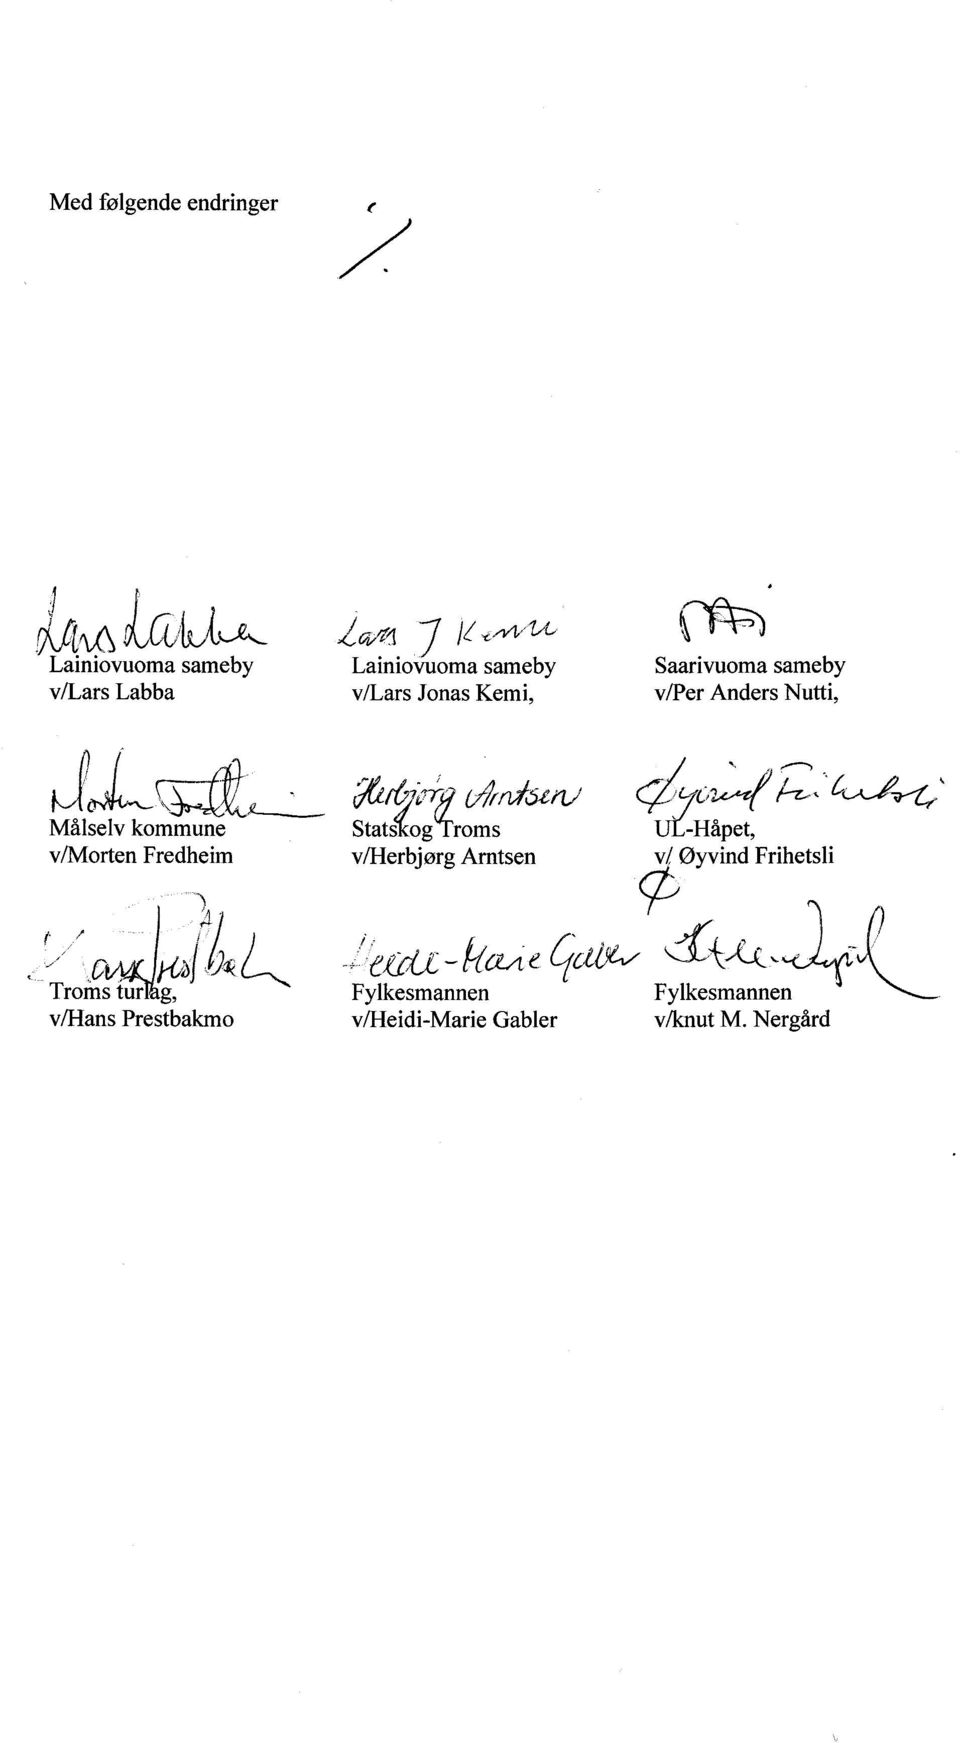 Med følgende endringer ./.
Lars Labba Lars J Kemi
Lainiovuoma sameby Lainiovuoma sameby Saarivuoma sameby
v/Lars Labba v/Lars Jonas Kemi, v/Per Anders Nutti,
Morten Fredheim Herbjørg Arntsen Øyvind Frihetsli
Målselv kommune Statskog Troms UL-Håpet,
v/Morten Fredheim v/Herbjørg Arntsen v/ Øyvind Frihetsli
Hans Prestbak Heidi-Marie Gabler
Troms turlag, Fylkesmannen Fylkesmannen
v/Hans Prestbakmo v/Heidi-Marie Gabler v/knut M. Nergård